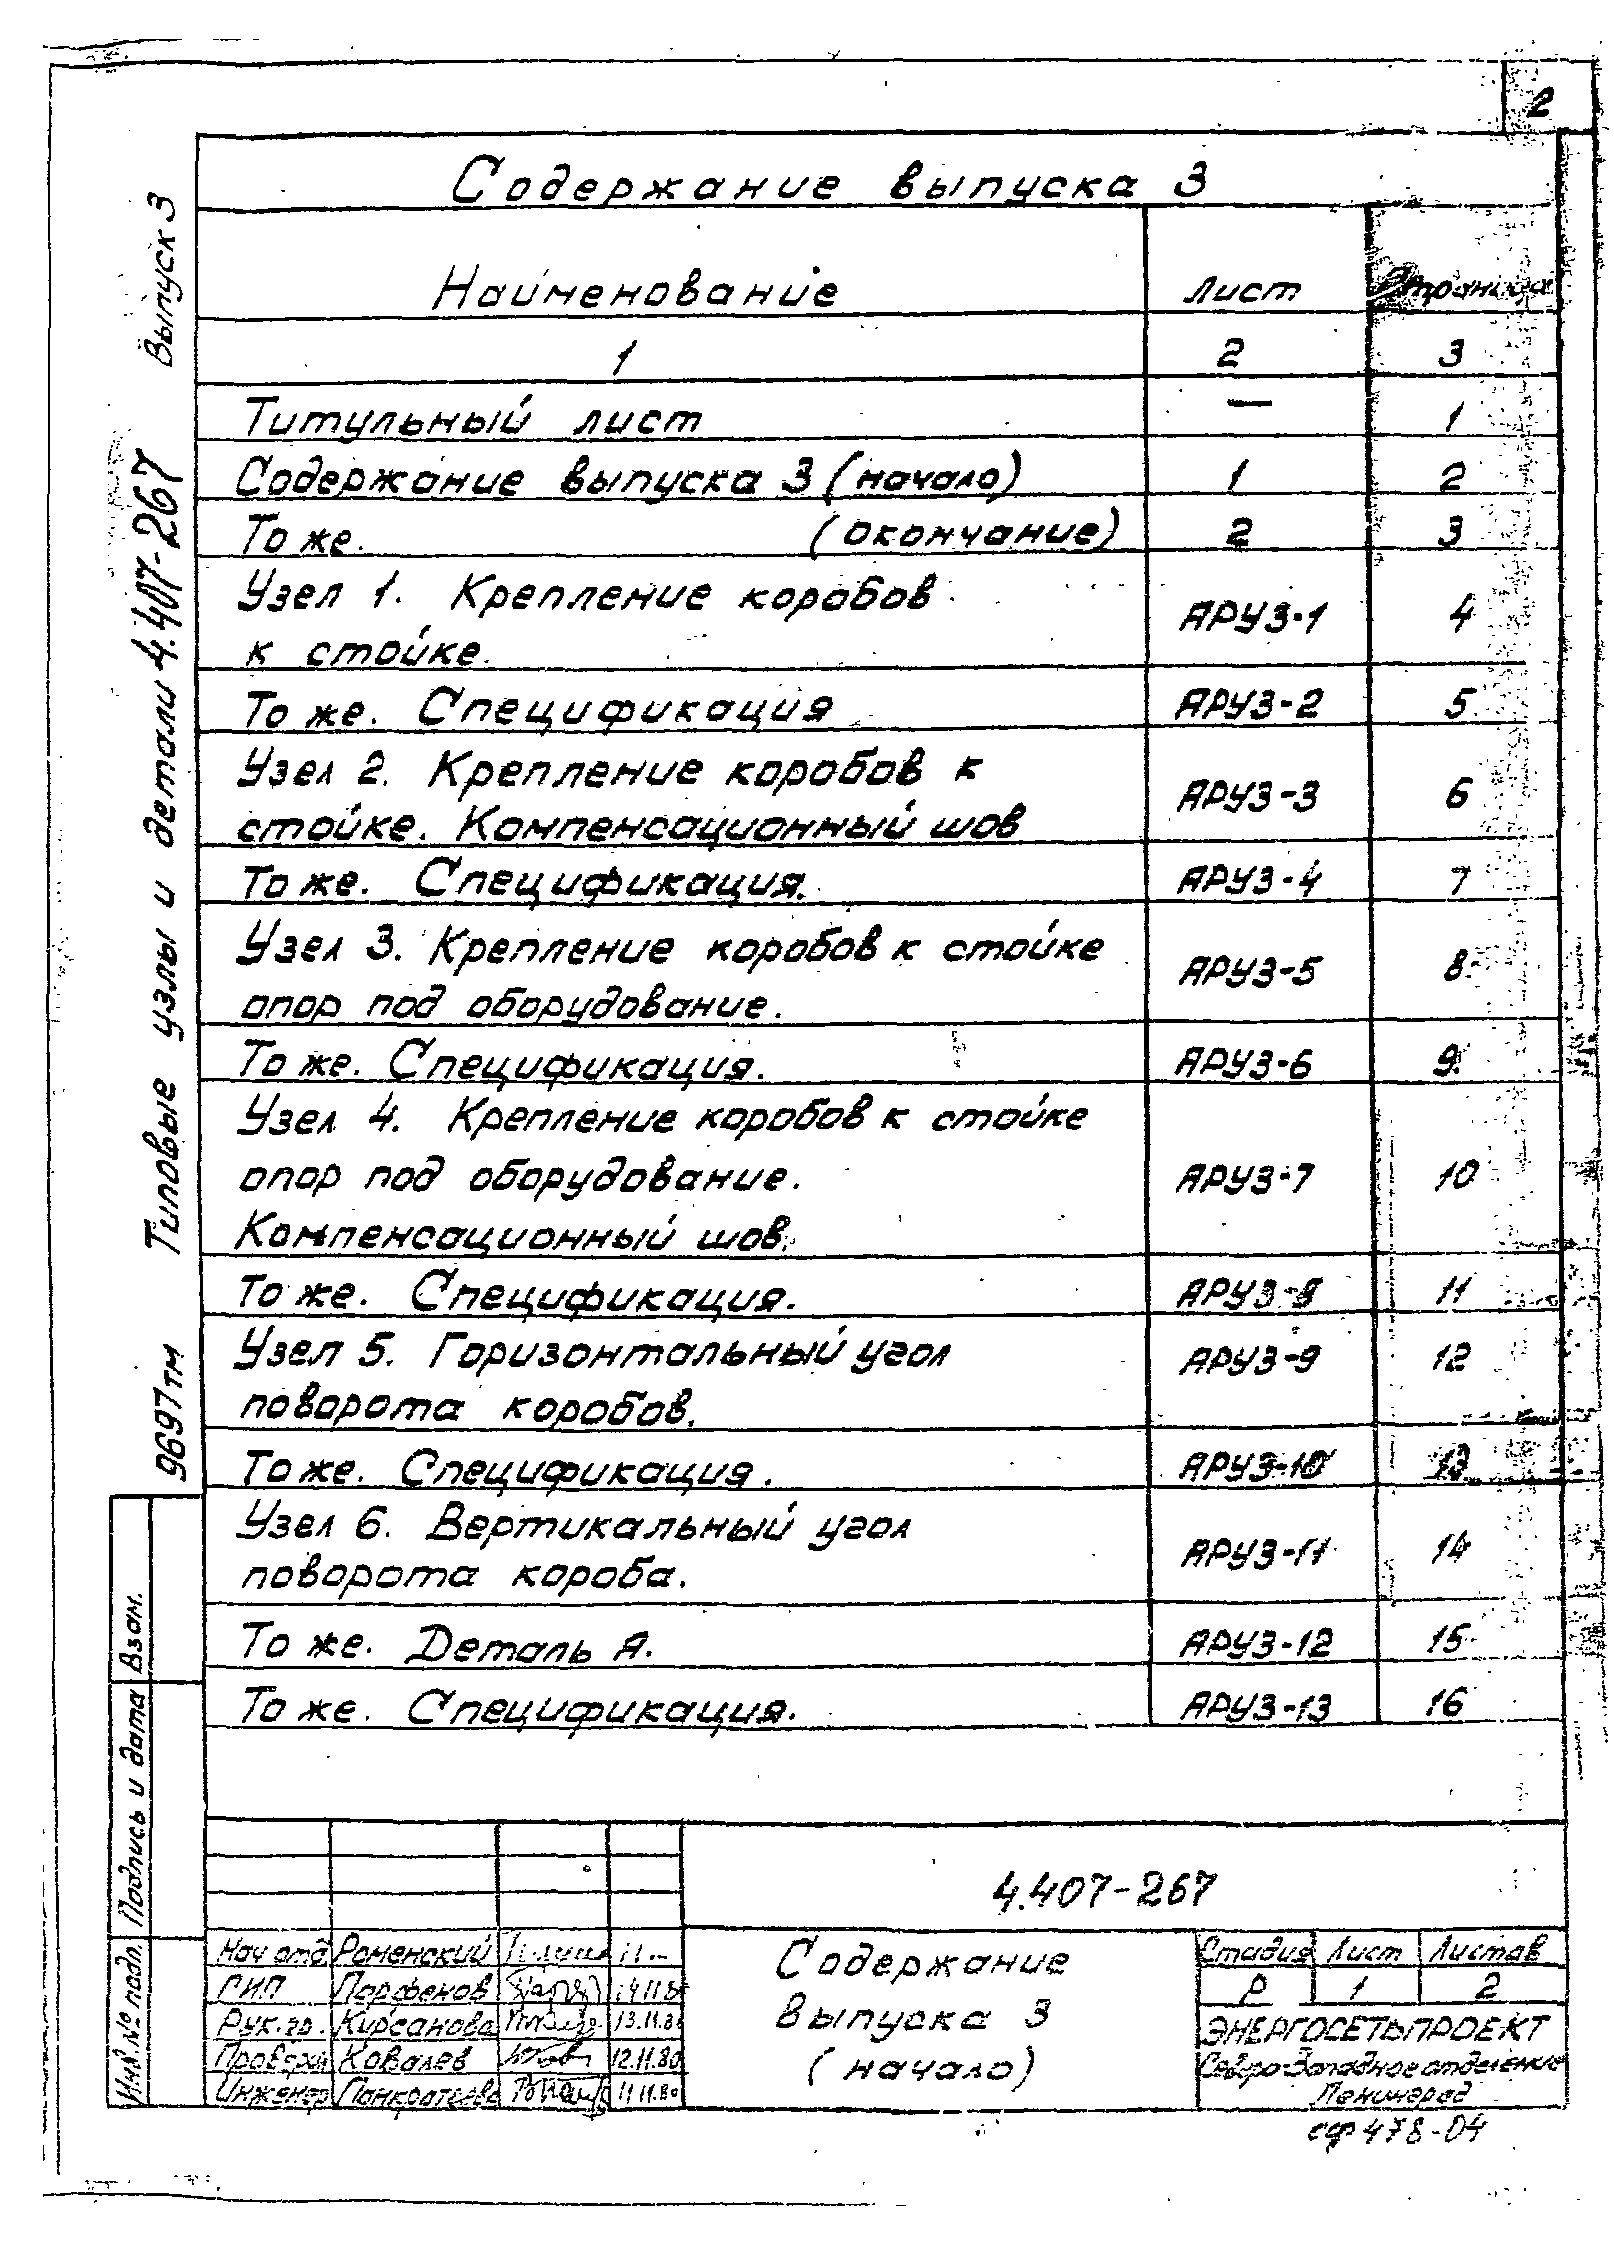 2
Содержание выпуска 3
Наименование Лист Страница
1 2 3
Титульный лист — 1
Содержание выпуска 3 (начало) 1 2
То же. (окончание) 2 3
Узел 1. Крепление коробов
к стойке. АРУЗ-1 4
То же. Спецификация АРУЗ-2 5
Узел 2. Крепление коробов к
стойке. Компенсационный шов АРУЗ-3 6
То же. Спецификация. АРУЗ-4 7
Узел 3. Крепление коробов к стойке
опор под оборудование. АРУЗ-5 8
То же. Спецификация. АРУЗ-6 9
Узел 4. Крепление коробов к стойке
опор под оборудование. АРУЗ-7 10
Компенсационный шов.
То же. Спецификация. АРУЗ-8 11
Узел 5. Горизонтальный угол АРУЗ-9 12
поворота коробов.
То же. Спецификация. АРУЗ-10 13
Узел 6. Вертикальный угол
поворота короба. АРУЗ-11 14
То же. Деталь А. АРУЗ-12 15
То же. Спецификация. АРУЗ-13 16
9697тм Типовые узлы и детали 4.407-267 Выпуск 3
Инв.№ подл. Подпись и дата Взам.
4.407-267
Нач отд Роменский
ГИП Парфенов
Рук.гр. Кирсанова
Ковалев 12.11.80
Инженер Панкратьева 11.11.80
Содержание
выпуска 3
(начало)
Стадия Лист Листов
Р 1 2
ЭНЕРГОСЕТЬПРОЕКТ
Северо-Западное отделение
Ленинград
сф 478-04